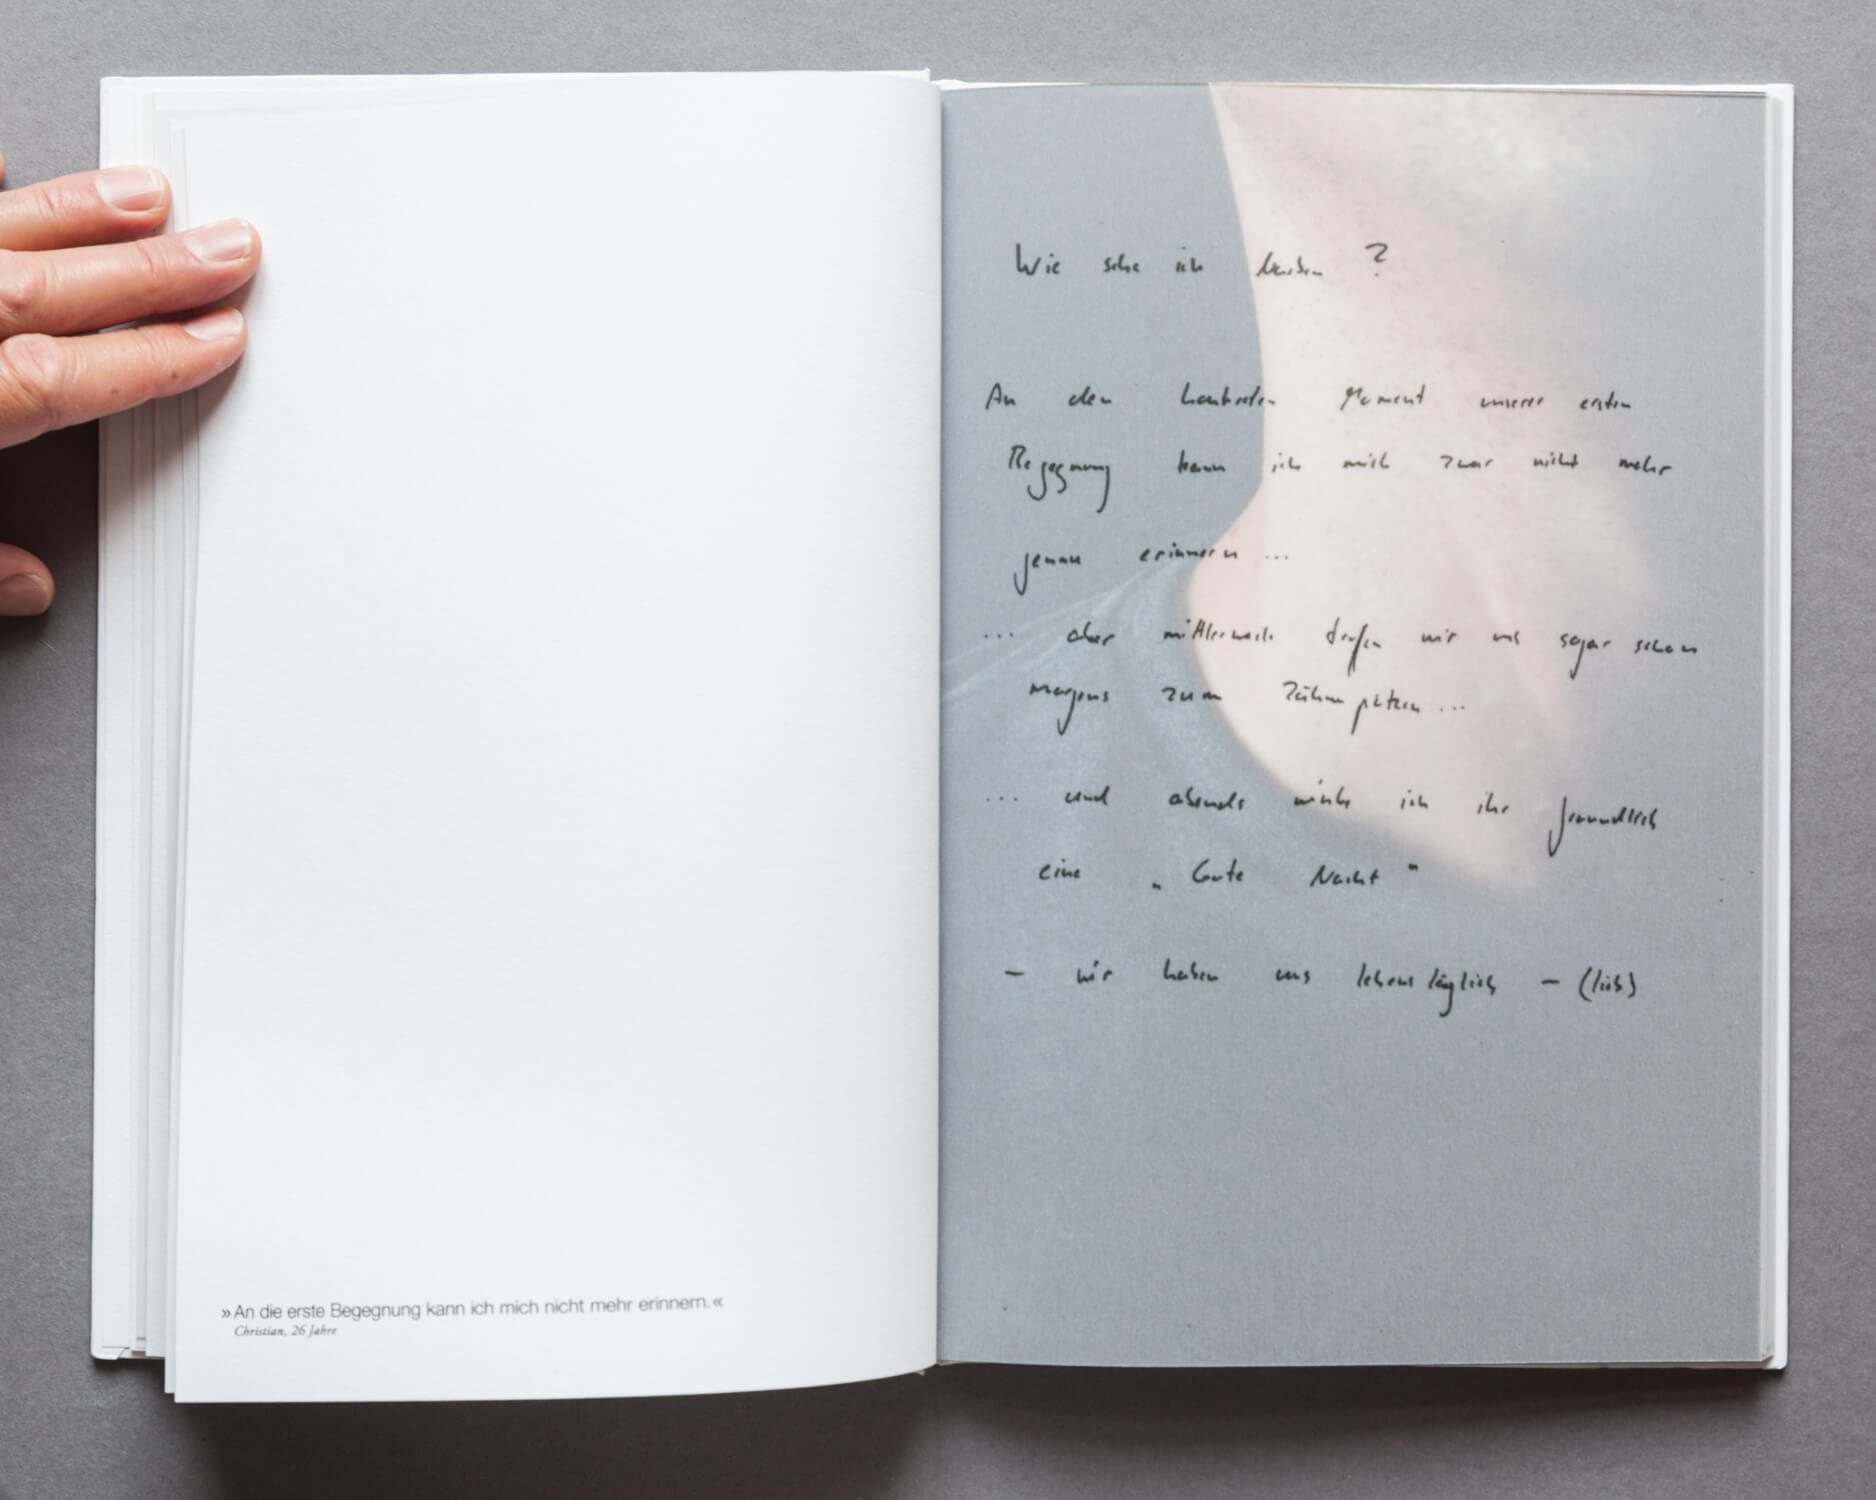 »An die erste Begegnung kann ich mich nicht mehr erinnern.«
Christian, 26 Jahre
Wie sehe ich Narben ?
An den konkreten Moment unserer ersten
Begegnung kann ich mich zwar nicht mehr
genau erinnern ...
... aber mittlerweile treffen wir uns sogar schon
morgens zum Zähneputzen ...
... und abends wünsche ich ihr freundlich
eine „Gute Nacht"
– wir haben uns lebenslänglich – (lieb)